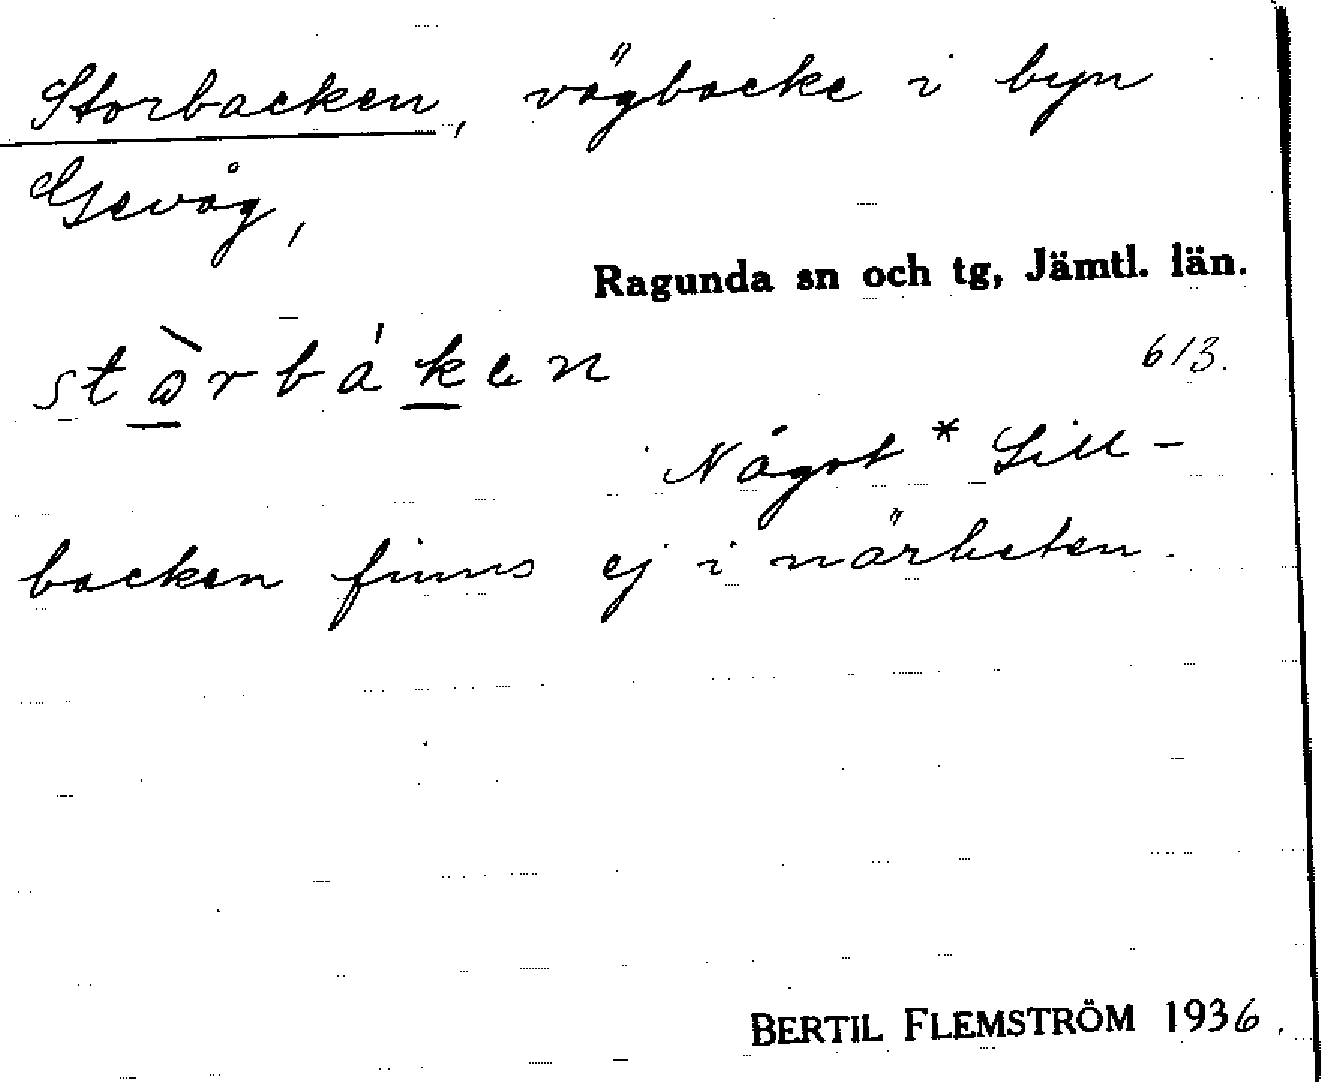 Storbacken, vägbacke i byn
Gevåg,
Ragunda sn och tg, Jämtl. län.
stòrbáken
613.
Något * Lill-
backen finns ej i närheten.
BERTIL FLEMSTRÖM 1936.